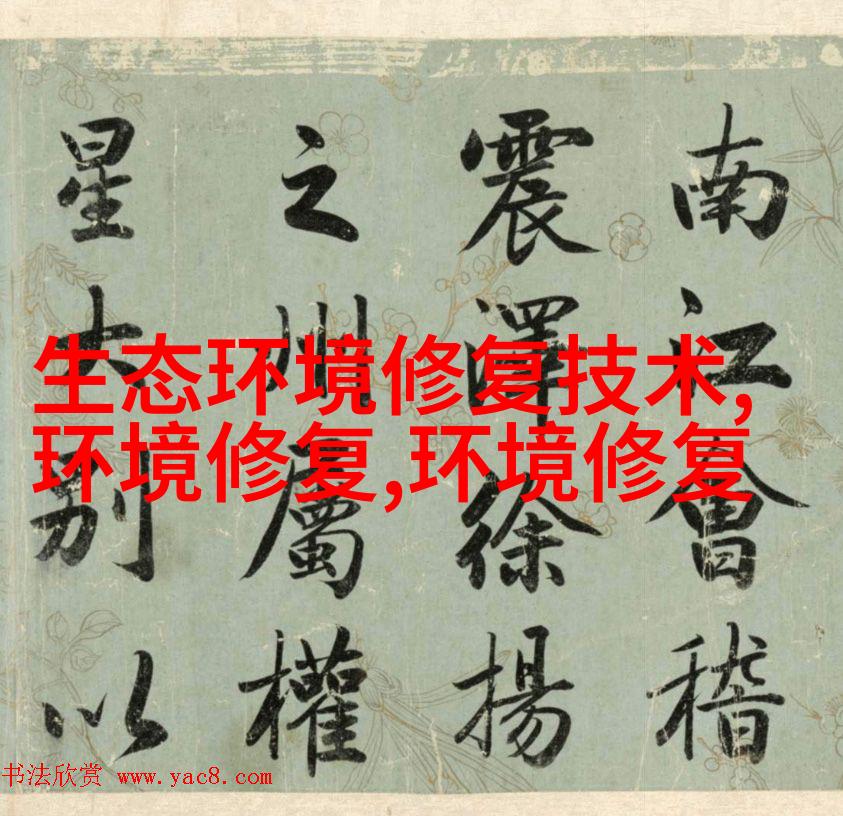 南江會稽
震澤徐揚
之州屬權
星大別以
生态环境修复技术,
环境修复,环境修复
书法欣赏 www.yac8.com